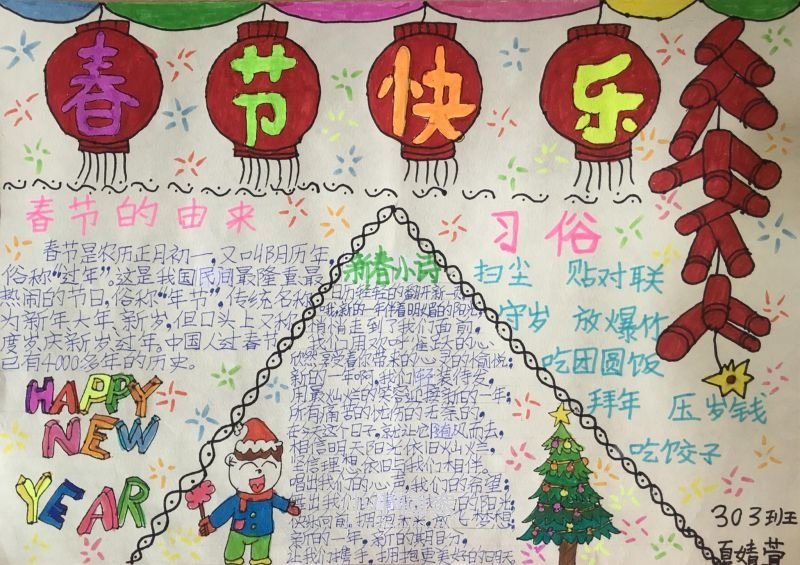 春节快乐
春节的由来
春节是农历正月初一,又叫阴历年,
俗称“过年”。这是我国民间最隆重最
热闹的节日,俗称“年节”,传统名称
为新年、大年、新岁,但口头上又称
度岁、庆新岁、过年。中国人过春节
已有4000多年的历史。
HAPPY
NEW
YEAR
新春小诗
日历轻轻的翻开新一
新的一年伴着明媚的阳光,
悄悄走到了我们面前,
我们用欢呼雀跃的心
欣然享受着你带来的心灵的愉悦;
新的一年啊,我们轻装待发,
用最灿烂的笑容迎接新的一年,
所有痛苦的忧伤的无奈的,
在今天这个日子,就让它随风而去,
相信明天阳光依旧灿烂
坚信理想依旧与我们相伴。
唱出我们的心声,我们的希望
的阳光,
拥抱未来,放飞梦想;
新的一年,新的期目分,
让我们携手,拥抱更美好的明天
习俗
扫尘 贴对联
守岁 放爆竹
吃团圆饭
拜年 压岁钱
吃饺子
303班
夏婧萱